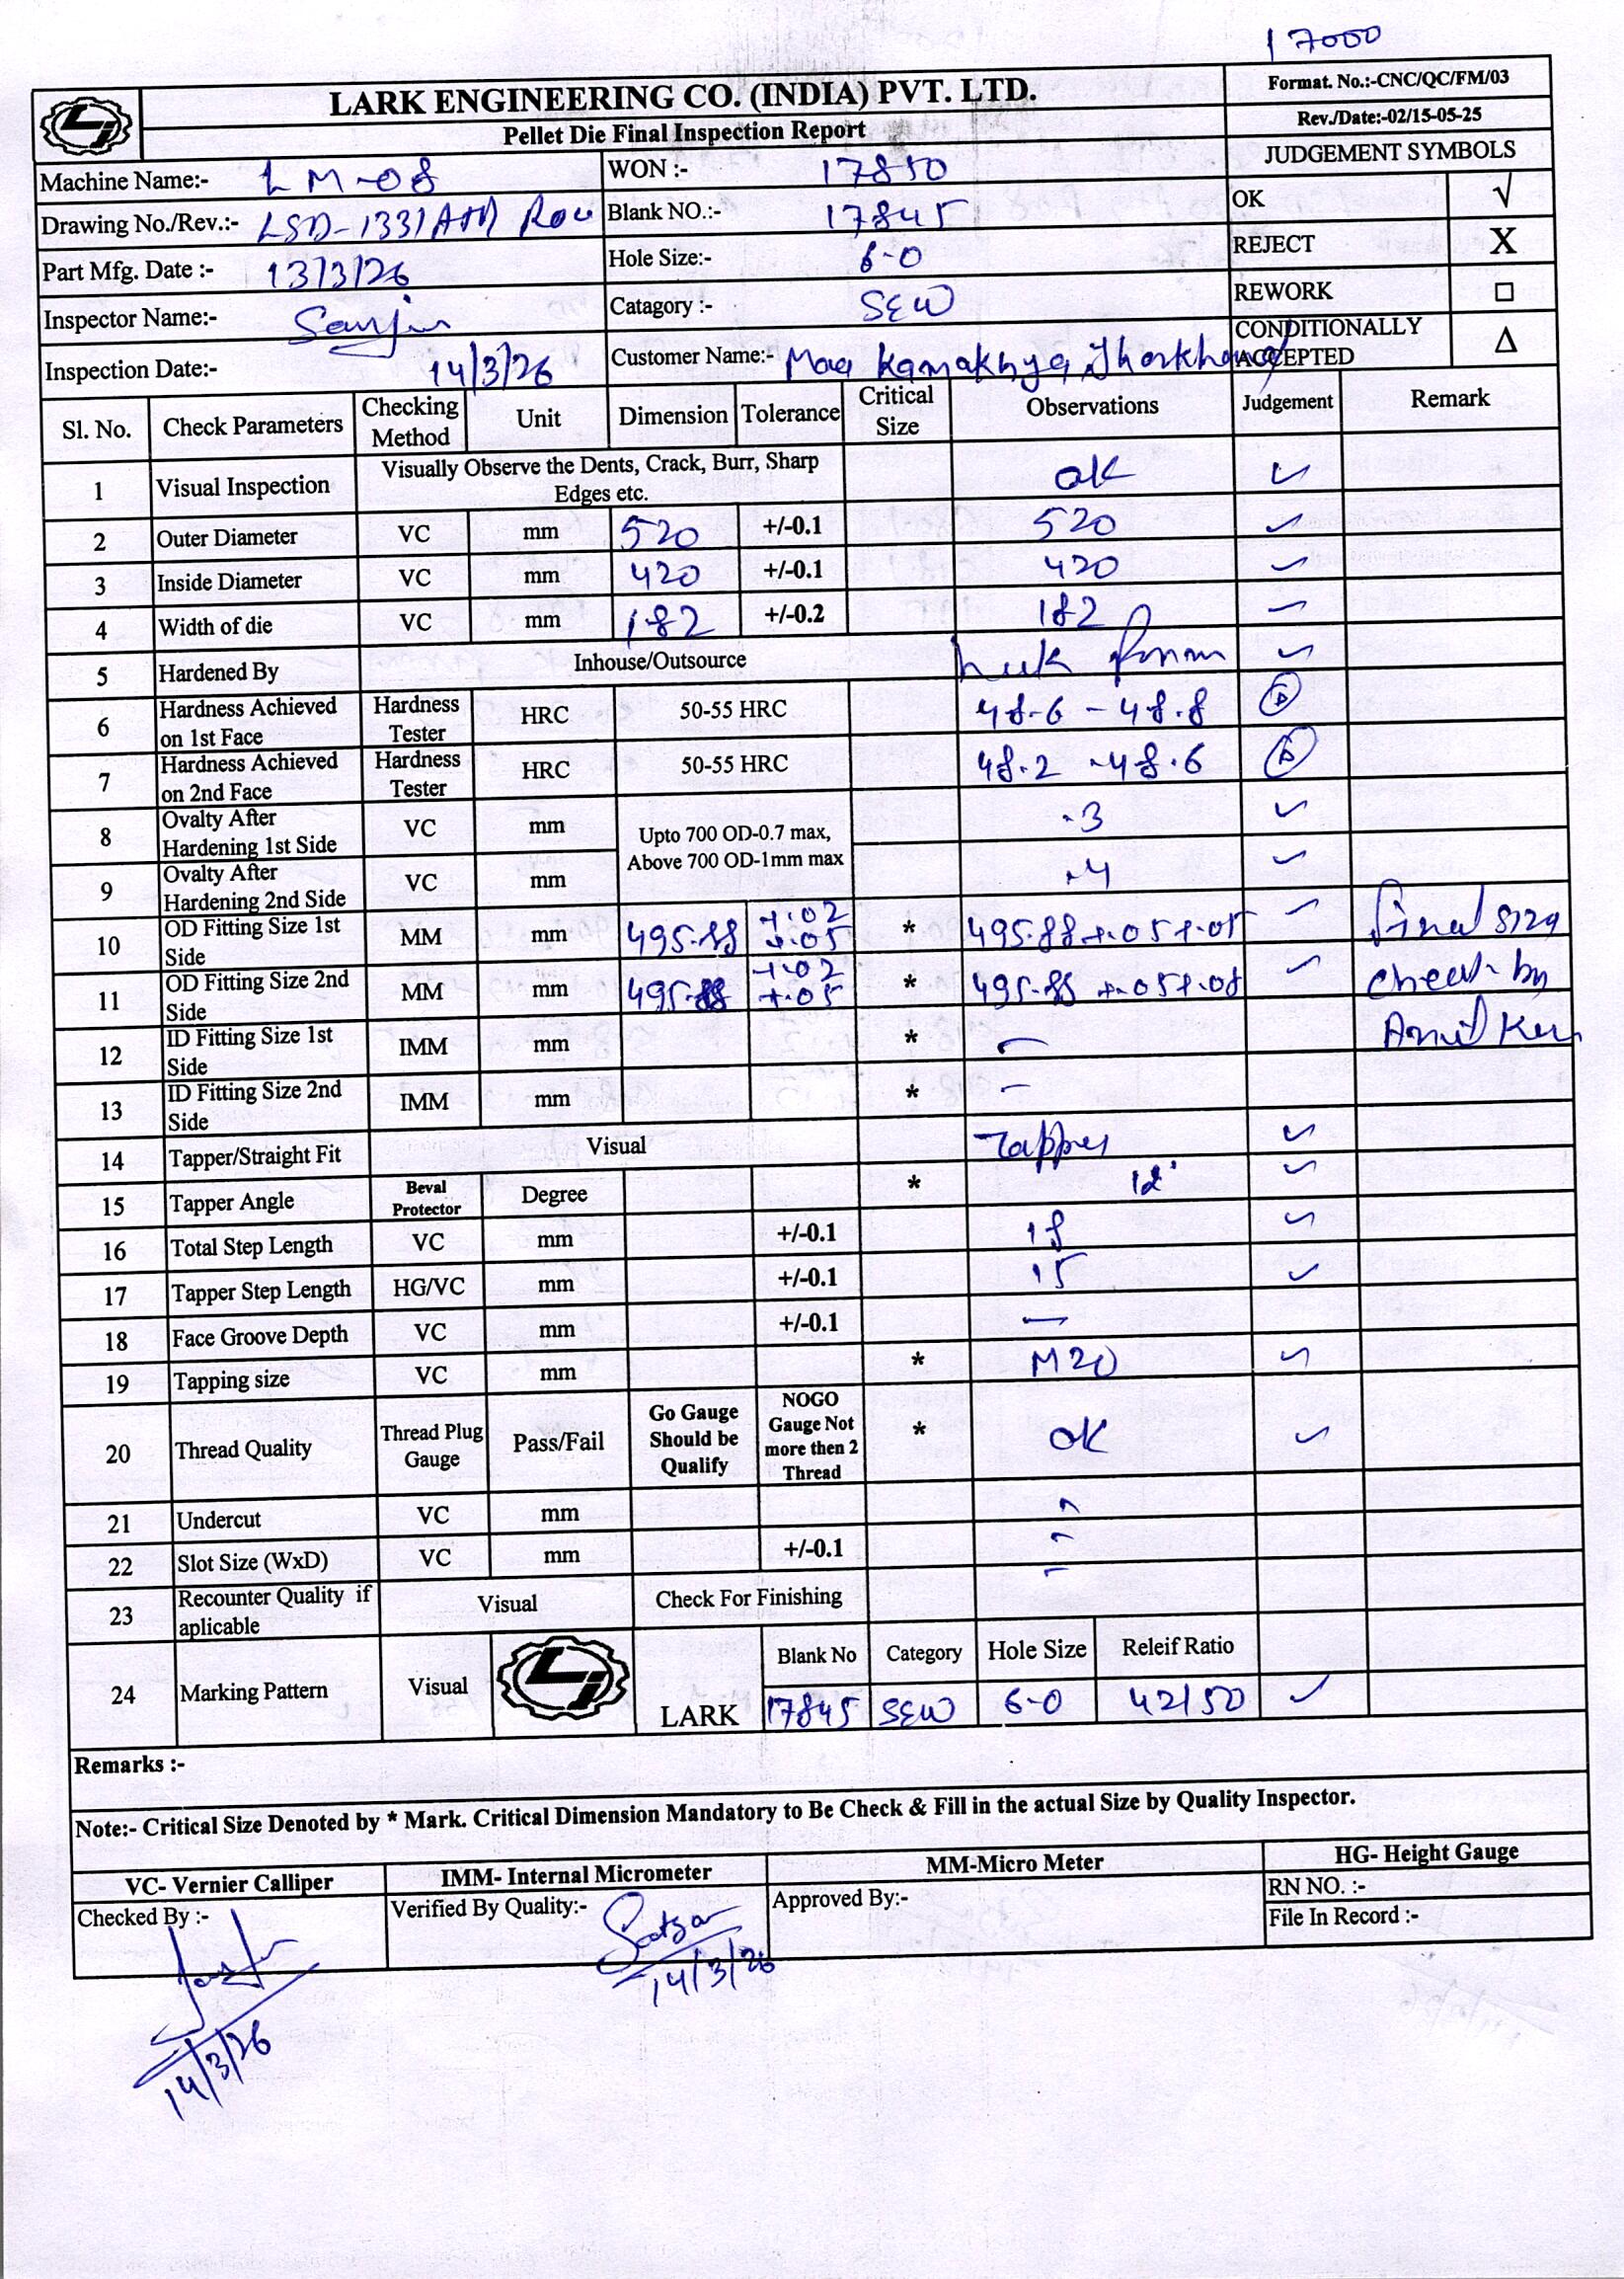 17000
LARK ENGINEERING CO. (INDIA) PVT. LTD.
Pellet Die Final Inspection Report
Format. No.:-CNC/QC/FM/03
Rev./Date:-02/15-05-25
JUDGEMENT SYMBOLS
Machine Name:- LM-08 WON :- 17850
Drawing No./Rev.:- LSD-1331 Blank NO.:- 17845 OK √
Part Mfg. Date :- 13/3/26 Hole Size:- 6-0 REJECT X
Inspector Name:- Catagory :- SEW REWORK □
Inspection Date:- 14/3/26 Customer Name:- Maa Kamakhya, Jharkhand CONDITIONALLY ACCEPTED Δ
Sl. No. Check Parameters Checking Method Unit Dimension Tolerance Critical Size Observations Judgement Remark
1 Visual Inspection Visually Observe the Dents, Crack, Burr, Sharp Edges etc. OK ✓
2 Outer Diameter VC mm 520 +/-0.1 520 ✓
3 Inside Diameter VC mm 420 +/-0.1 420 ✓
4 Width of die VC mm 182 +/-0.2 182 ✓
5 Hardened By Inhouse/Outsource ✓
6 Hardness Achieved on 1st Face Hardness Tester HRC 50-55 HRC 48.6 - 48.8
7 Hardness Achieved on 2nd Face Hardness Tester HRC 50-55 HRC 48.2 - 48.6
8 Ovalty After Hardening 1st Side VC mm Upto 700 OD-0.7 max, Above 700 OD-1mm max .3 ✓
9 Ovalty After Hardening 2nd Side VC mm .4 ✓
10 OD Fitting Size 1st Side MM mm 495.88 +.02 +.05 * 495.88 +.05 +.05 ✓ final size
11 OD Fitting Size 2nd Side MM mm 495.88 +.02 +.05 * 495.88 +.05 +.08 ✓ check by
12 ID Fitting Size 1st Side IMM mm * - Amit
13 ID Fitting Size 2nd Side IMM mm * -
14 Tapper/Straight Fit Visual Tapper ✓
15 Tapper Angle Beval Protector Degree * ✓
16 Total Step Length VC mm +/-0.1 18 ✓
17 Tapper Step Length HG/VC mm +/-0.1 15 ✓
18 Face Groove Depth VC mm +/-0.1 -
19 Tapping size VC mm * M20 ✓
20 Thread Quality Thread Plug Gauge Pass/Fail Go Gauge Should be Qualify NOGO Gauge Not more then 2 Thread * OK ✓
21 Undercut VC mm -
22 Slot Size (WxD) VC mm +/-0.1 -
23 Recounter Quality if aplicable Visual Check For Finishing -
24 Marking Pattern Visual LARK Blank No Category Hole Size Releif Ratio
17845 SEW 6-0 42/50 ✓
Remarks :-
Note:- Critical Size Denoted by * Mark. Critical Dimension Mandatory to Be Check & Fill in the actual Size by Quality Inspector.
VC- Vernier Calliper IMM- Internal Micrometer MM-Micro Meter HG- Height Gauge
Checked By :- Verified By Quality:- Approved By:- RN NO. :-
File In Record :-
14/3/26
14/3/26